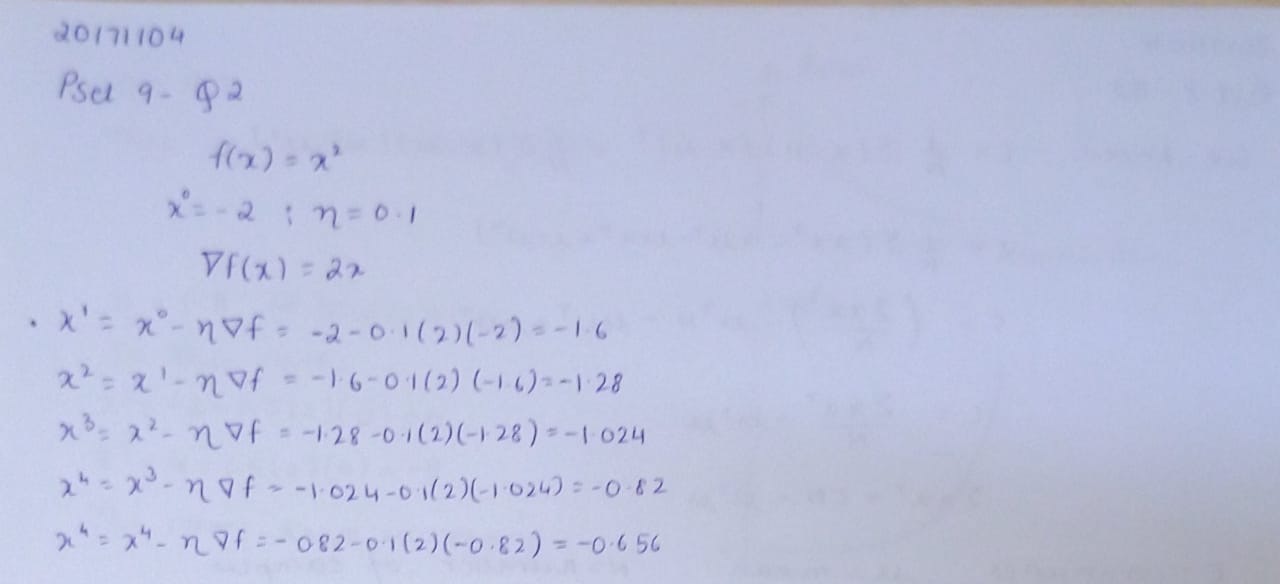 20171104
Pset 9 - Q2
f(x) = x²
x⁰ = -2 ; η = 0.1
∇f(x) = 2x
• x¹ = x⁰ - η∇f = -2-0.1(2)(-2) = -1.6
x² = x¹ - η∇f = -1.6-0.1(2)(-1.6) = -1.28
x³ = x² - η∇f = -1.28-0.1(2)(-1.28) = -1.024
x⁴ = x³ - η∇f = -1.024-0.1(2)(-1.024) = -0.82
x⁴ = x⁴ - η∇f = -082-0.1(2)(-0.82) = -0.656